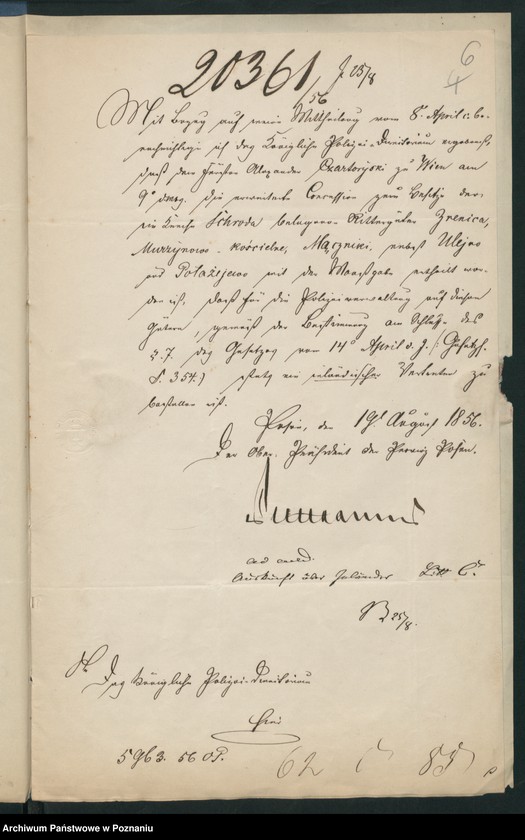 20361/56 J. 25/8
6
4
Mit Bezug auf meine Mittheilung vom 8t April c. be-
nachrichtige ich das Königliche Polizei-Direktorium ergebenst,
daß dem Fürsten Alexander Czartoryski zu Wien am
9t d. Mts. die erwartete Concession zum Besitz der,
im Kreise Schroda belegenen Rittergüter Zrenica,
Murzynowo-kościelne, Mączniki, nebst Ulejno
und Polażejewo mit der Maasgabe ertheilt wor-
den ist, daß für die Polizeiverwaltung auf diesen
Gütern, gemäß der Bestimmung am Schluß des
§. 7. des Gesetzes vom 14t April d. J. (: Gesetzs.
S. 354.) stets ein inländischer Vertreter zu
bestellen ist.
Posen, den 19t August 1856.
Der Ober-Präsident der Provinz Posen.
ad acta
Auskunft über Inländer Litt. C.
25/8.
An Das Königliche Polizei-Direktorium
hier
5963. 56 O.P.
62
Archiwum Państwowe w Poznaniu